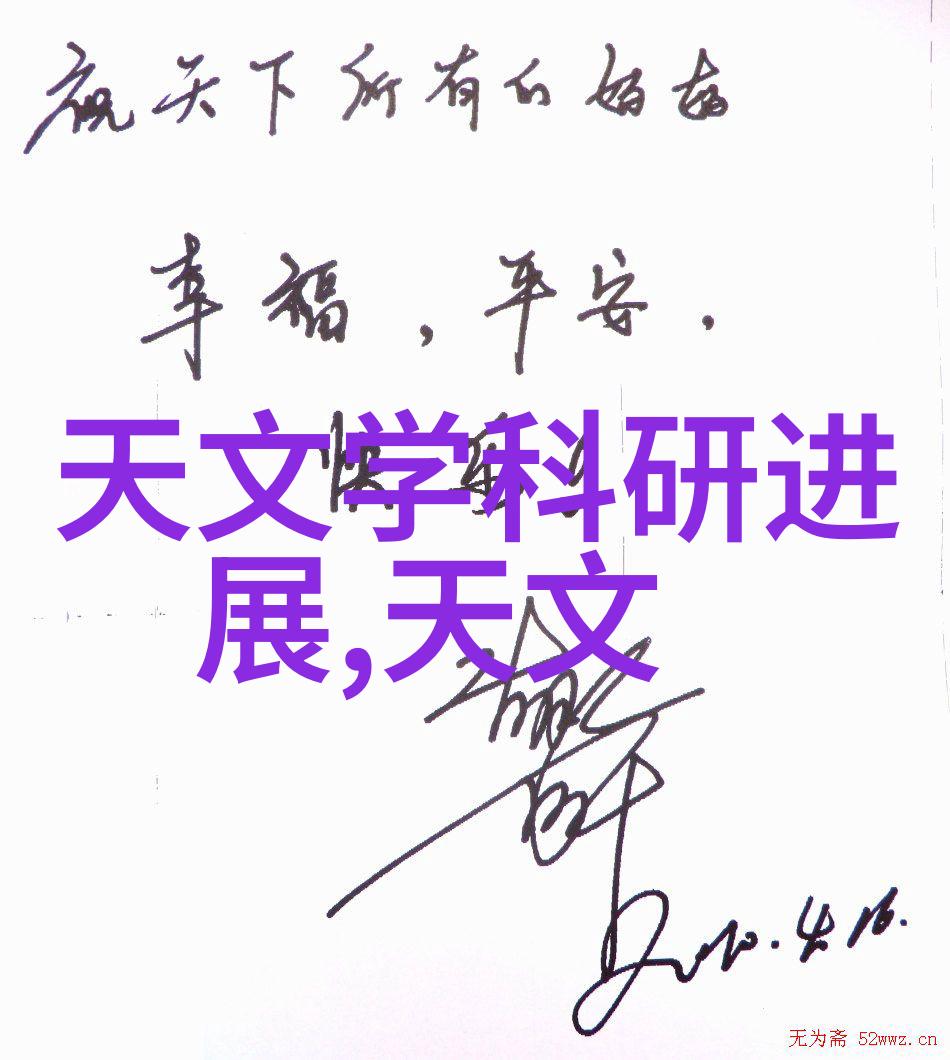 祝天下所有的妈妈
幸福，平安，
快乐！
天文学科研进
展,天文
2010.4.16.
无为斋 52wwz.cn